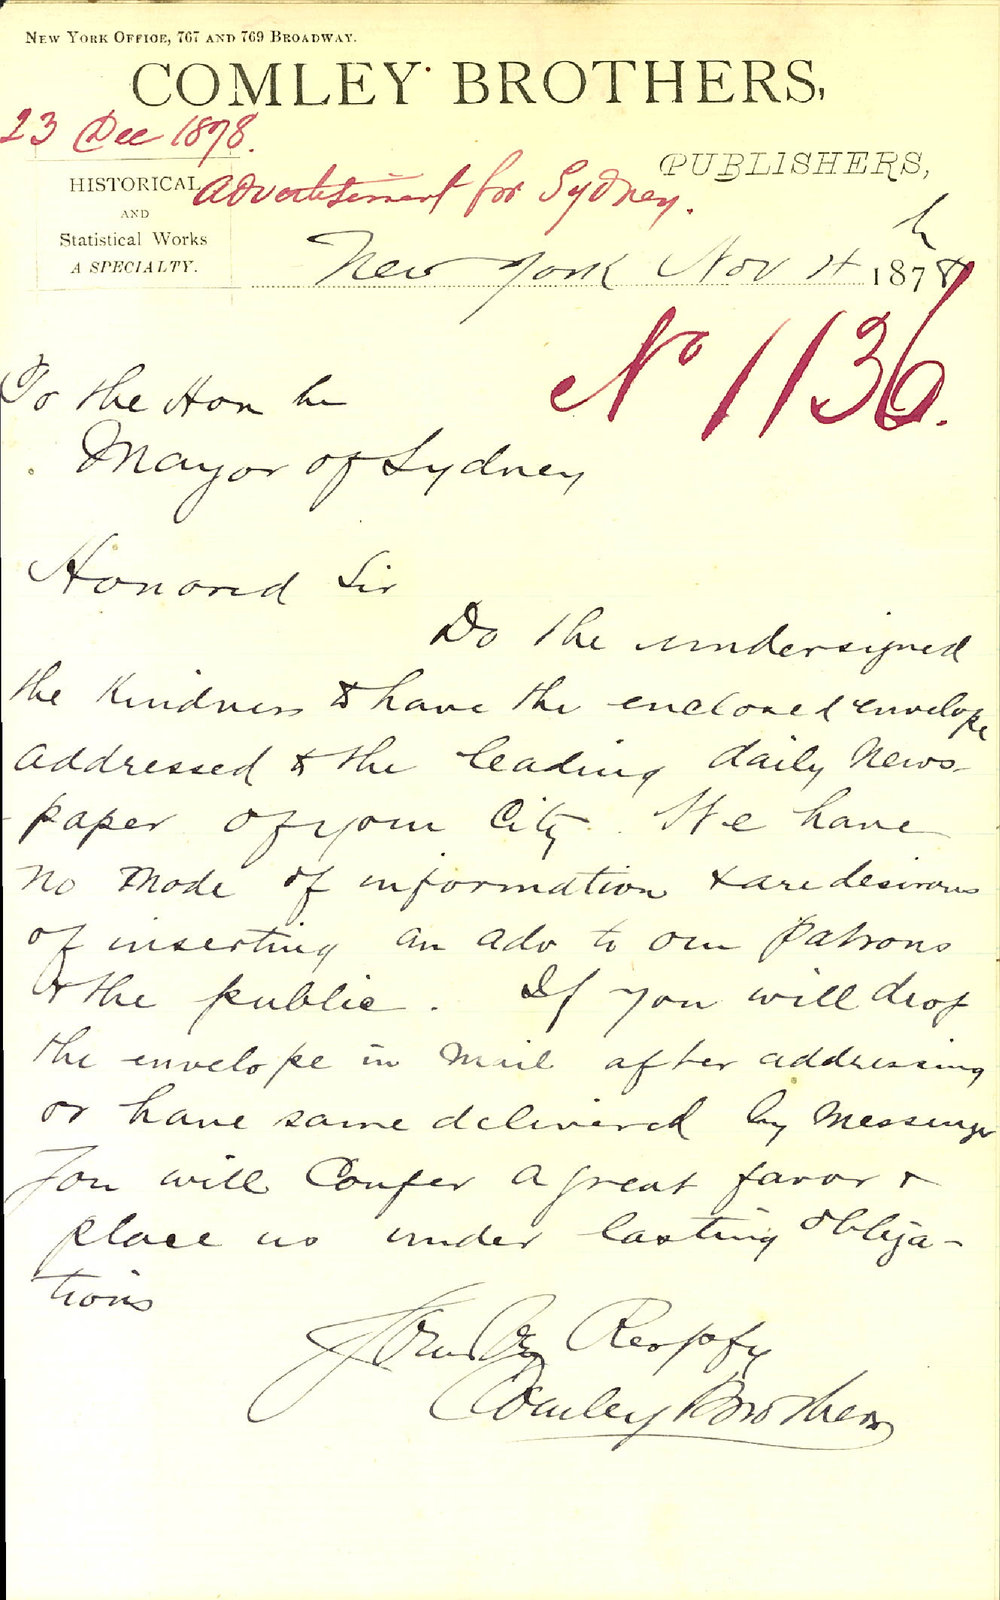 NEW YORK OFFICE, 767 AND 769 BROADWAY.
COMLEY BROTHERS,
23 Dec 1878.
PUBLISHERS,
HISTORICAL
AND
Statistical Works
A SPECIALTY.
Advertisement for Sydney.
New York Nov 4 1878
No 1136.
To the Hon
Mayor of Sydney
Honored Sir
Do the undersigned
the kindness to have the enclosed envelope
addressed to the leading daily News-
paper of your City. We have
no mode of information & are desirous
of inserting an adv to our patrons
& the public. If you will drop
the envelope in mail after addressing
or have same delivered by Messenger
You will Confer a great favor &
place us under lasting obliga-
tions
Respfy
Comley Brothers